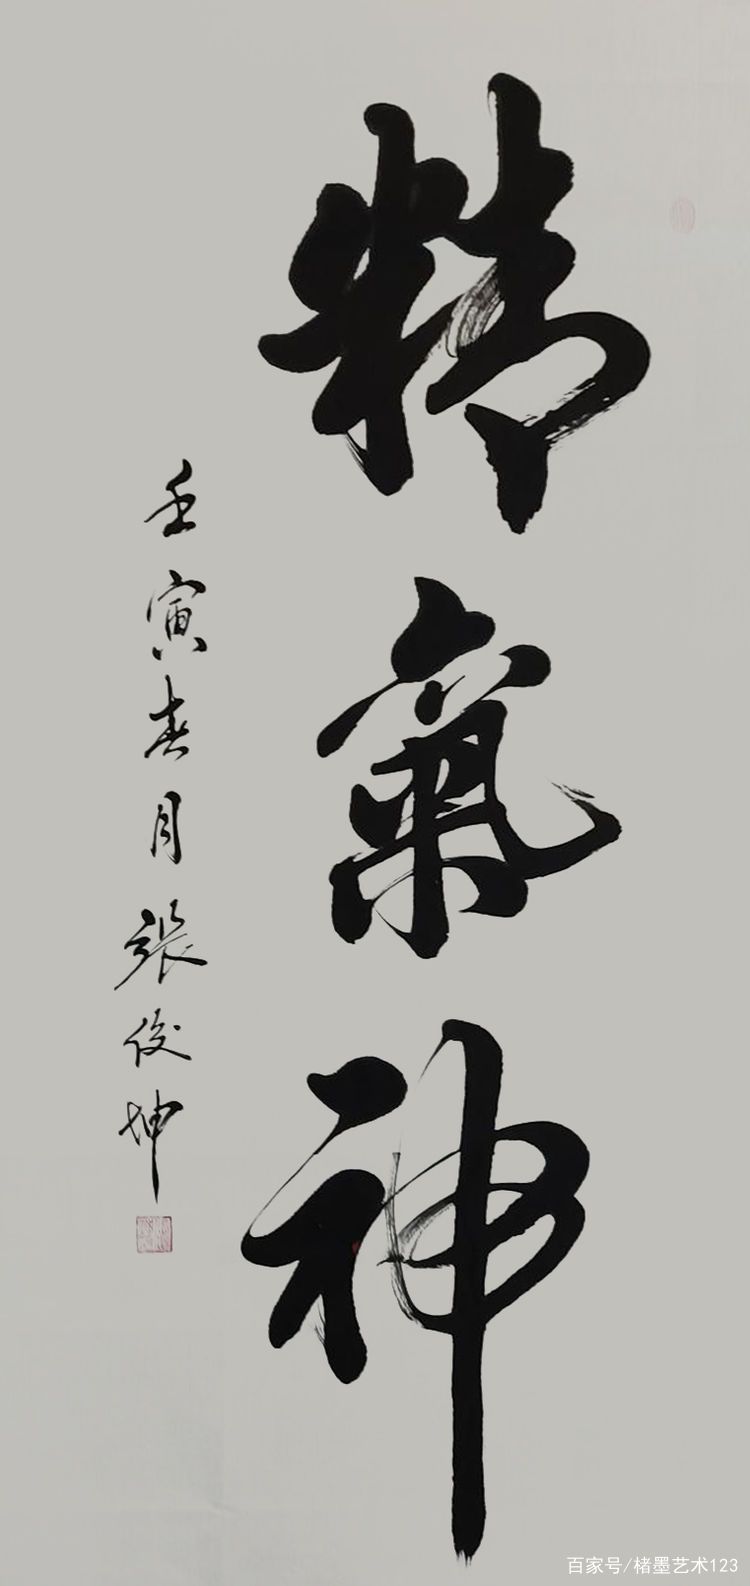 精氣神
壬寅春月張俊坤
百家号/楮墨艺术123